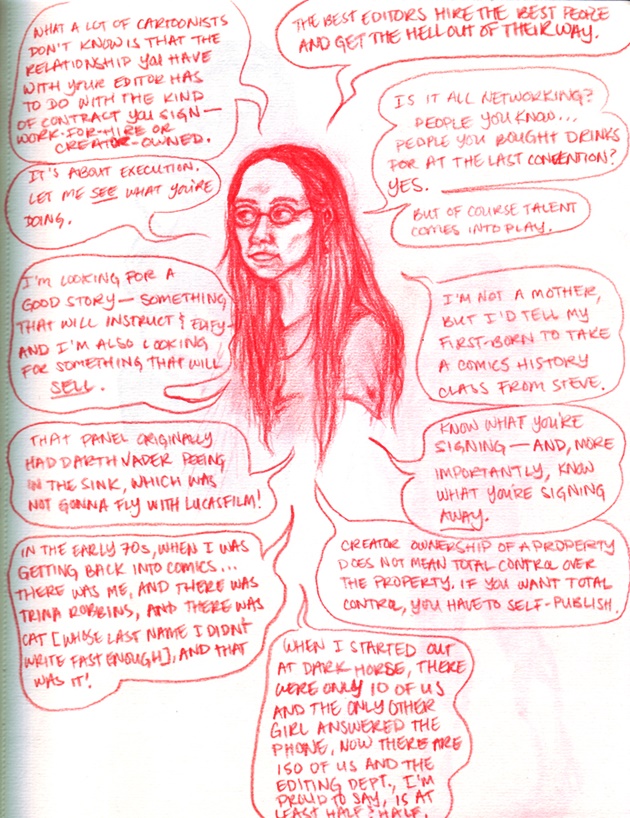 WHAT A LOT OF CARTOONISTS
DON'T KNOW IS THAT THE
RELATIONSHIP YOU HAVE
WITH YOUR EDITOR HAS
TO DO WITH THE KIND
OF CONTRACT YOU SIGN—
WORK-FOR-HIRE OR
CREATOR-OWNED.
THE BEST EDITORS HIRE THE BEST PEOPLE
AND GET THE HELL OUT OF THEIR WAY.
IS IT ALL NETWORKING?
PEOPLE YOU KNOW...
PEOPLE YOU BOUGHT DRINKS
FOR AT THE LAST CONVENTION?
YES.
BUT OF COURSE TALENT
COMES INTO PLAY.
IT'S ABOUT EXECUTION.
LET ME SEE WHAT YOU'RE
DOING.
I'M LOOKING FOR A
GOOD STORY— SOMETHING
THAT WILL INSTRUCT & EDIFY-
AND I'M ALSO LOOKING
FOR SOMETHING THAT WILL
SELL.
I'M NOT A MOTHER,
BUT I'D TELL MY
FIRST-BORN TO TAKE
A COMICS HISTORY
CLASS FROM STEVE.
THAT PANEL ORIGINALLY
HAD DARTH VADER PEEING
IN THE SINK, WHICH WAS
NOT GONNA FLY WITH LUCASFILM!
KNOW WHAT YOU'RE
SIGNING—AND, MORE
IMPORTANTLY, KNOW
WHAT YOU'RE SIGNING
AWAY.
IN THE EARLY 70s, WHEN I WAS
GETTING BACK INTO COMICS...
THERE WAS ME, AND THERE WAS
TRINA ROBBINS, AND THERE WAS
CAT [WHOSE LAST NAME I DIDN'T
WRITE FAST ENOUGH], AND THAT
WAS IT!
CREATOR OWNERSHIP OF A PROPERTY
DOES NOT MEAN TOTAL CONTROL OVER
THE PROPERTY. IF YOU WANT TOTAL
CONTROL, YOU HAVE TO SELF-PUBLISH.
WHEN I STARTED OUT
AT DARK HORSE, THERE
WERE ONLY 10 OF US
AND THE ONLY OTHER
GIRL ANSWERED THE
PHONE, NOW THERE ARE
150 OF US AND THE
EDITING DEPT., I'M
PROUD TO SAY, IS AT
LEAST HALF & HALF.